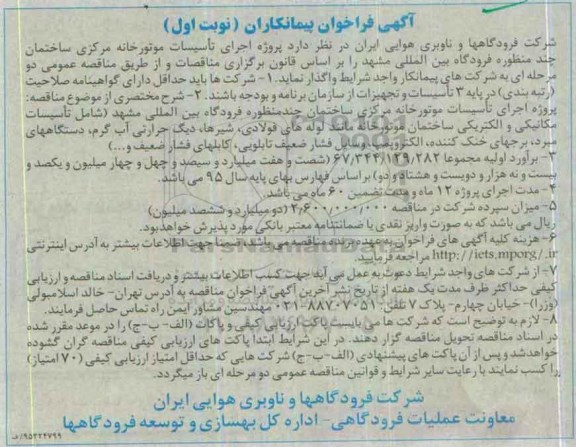 آگهی فراخوان پیمانکاران (نوبت اول)
شرکت فرودگاهها و ناوبری هوایی ایران در نظر دارد پروژه اجرای تأسیسات موتورخانه مرکزی ساختمان
چند منظوره فرودگاه بین المللی مشهد را بر اساس قانون برگزاری مناقصات و از طریق مناقصه عمومی دو
مرحله ای به شرکت های پیمانکار واجد شرایط واگذار نماید. ۱- شرکت ها باید حداقل دارای گواهینامه صلاحیت
(رتبه بندی) در پایه ۳ تأسیسات و تجهیزات از سازمان برنامه و بودجه باشند. ۲- شرح مختصری از موضوع مناقصه:
پروژه اجرای تأسیسات موتورخانه مرکزی ساختمان چندمنظوره فرودگاه بین المللی مشهد (شامل تأسیسات
مکانیکی و الکتریکی ساختمان موتورخانه مانند لوله های فولادی، شیرها، دیگ حرارتی آب گرم، دستگاههای
مبرد، برجهای خنک کننده، الکتروپمپ، وسایل فشار ضعیف تابلویی، کابلهای فشار ضعیف و...)
۳- برآورد اولیه مجموعا ۶۷/۳۴۴/۱۲۹/۲۸۲ (شصت و هفت میلیارد و سیصد و چهل و چهار میلیون و یکصد و
بیست و نه هزار و دویست و هشتاد و دو) بر اساس فهارس بهای پایه سال ۹۵ می باشد.
۴- مدت اجرای پروژه ۱۲ ماه و مدت تضمین ۶۰ ماه می باشد.
۵- میزان سپرده شرکت در مناقصه ۲٫۶۰۰٫۰۰۰٫۰۰۰ (دو میلیارد و ششصد میلیون)
ریال می باشد که به صورت واریز نقدی یا ضمانتنامه معتبر بانکی مورد پذیرش خواهد بود.
۶- هزینه کلیه آگهی های فراخوان به عهده برنده مناقصه می باشد. ضمنا جهت اطلاعات بیشتر به آدرس اینترنتی
http://iets.mporg/.ir مراجعه فرمایید.
۷- از شرکت های واجد شرایط دعوت به عمل می آید جهت کسب اطلاعات بیشتر و دریافت اسناد مناقصه و ارزیابی
کیفی حداکثر ظرف مدت یک هفته از تاریخ نشر آخرین آگهی فراخوان مناقصه به آدرس تهران- خالد اسلامبولی
(وزرا)- خیابان چهارم- پلاک ۷ تلفن: ۸۸۷۰۷۰۵۱-۰۲۱ مهندسین مشاور ایمن راه تماس حاصل فرمایند.
۸- لازم به توضیح است که شرکت ها می بایست پاکت ارزیابی کیفی و پاکات (الف- ب-ج) را در موعد مقرر شده
در اسناد مناقصه تحویل مناقصه گزار دهند. در این شرایط ابتدا پاکت های ارزیابی کیفی مناقصه گران گشوده
خواهد شد و پس از آن پاکت های پیشنهادی (الف-ب-ج) شرکت هایی که حداقل امتیاز ارزیابی کیفی (۷۰ امتیاز)
را کسب نمایند با رعایت سایر شرایط و قوانین مناقصه عمومی دو مرحله ای باز میگردد.
شرکت فرودگاهها و ناوبری هوایی ایران
معاونت عملیات فرودگاهی- اداره کل بهسازی و توسعه فرودگاهها
۹۵۲۲۴۷۹۹/ف